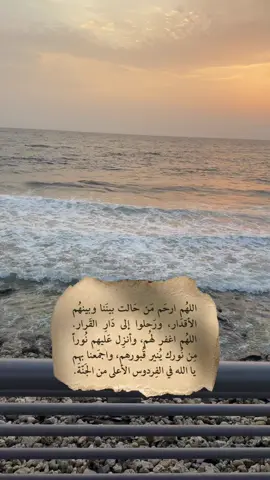 اللهُم ارحَم مَن حَالت بينَنا وبينهُم
الأقدَار، ورَحلوا إلى دَارِ القَرار.
اللهُم اغفر لهُم، وأنزِل عَليهم نُوراً
مِن نُورك يُنير قُبورهم، واجمَعنا بِهم
يا الله في الفِردوس الأعلى من الجَنّة.